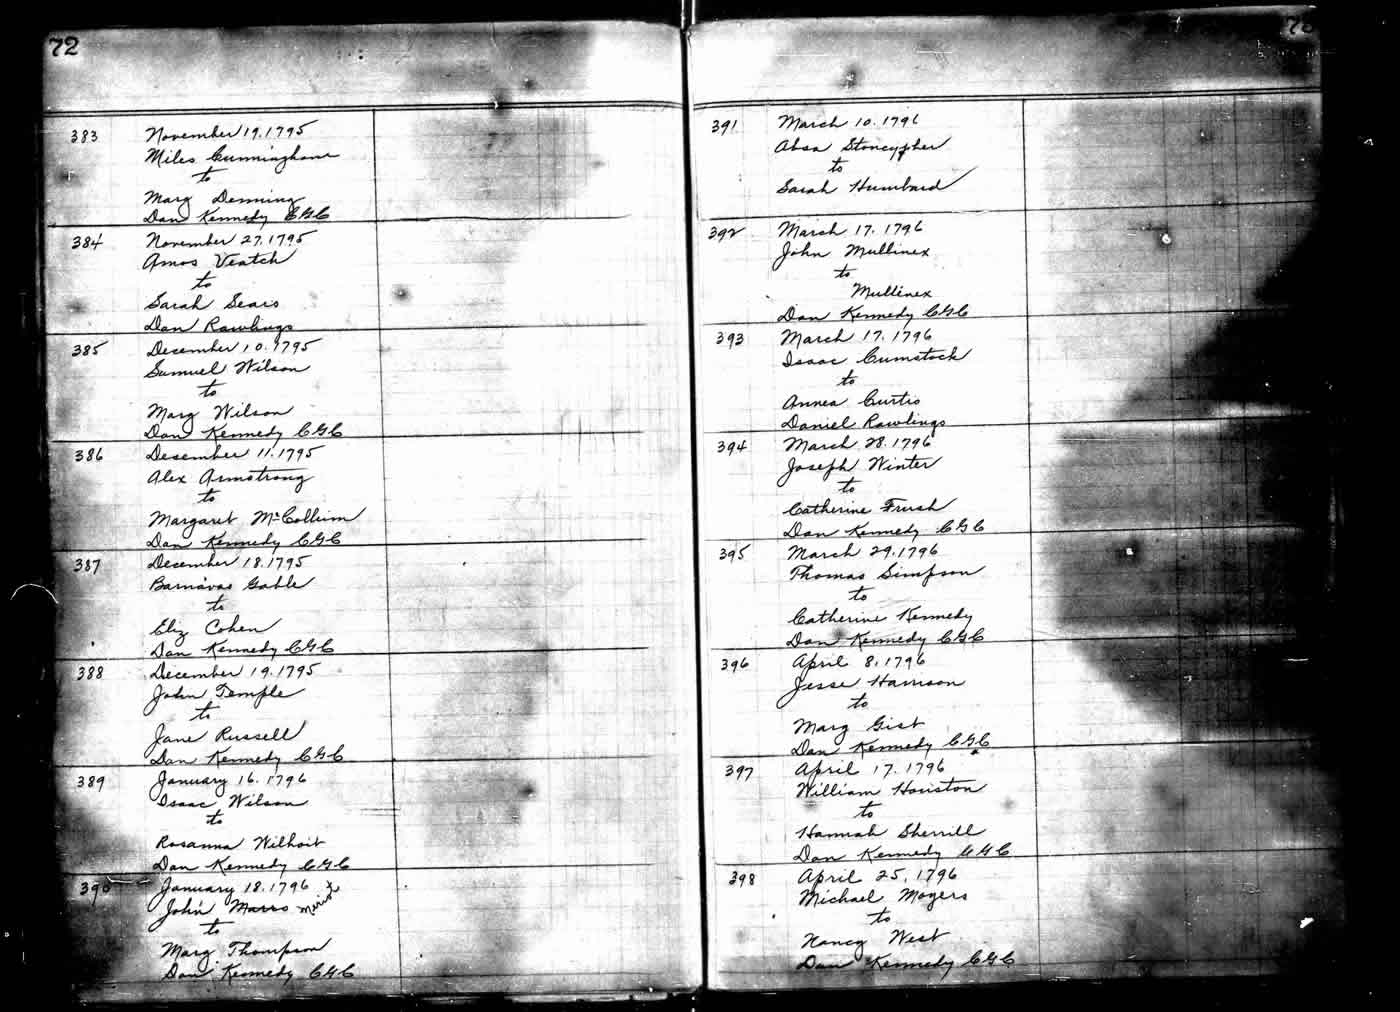 72
383
November 19, 1795
Miles Cunningham
to
Mary Denning
Dan Kennedy CGC
384
November 27, 1795
Amos Veatch
to
Sarah Sears
Dan Rawlings
385
December 10, 1795
Samuel Wilson
to
Mary Wilson
Dan Kennedy CGC
386
December 11, 1795
Alex Armstrong
to
Margaret McCollum
Dan Kennedy CGC
387
December 18, 1795
Barnavas Gable
to
Eliz Cohen
Dan Kennedy CGC
388
December 19, 1795
John Temple
to
Jane Russell
Dan Kennedy CGC
389
January 16, 1796
Isaac Wilson
to
Rosanna Wilhoit
Dan Kennedy CGC
390
January 18, 1796
John
to
Mary Thompson
Dan Kennedy CGC
391
March 10, 1796
Absa Stoncypher
to
Sarah Humbard
392
March 17, 1796
John Mullinex
to
Mullinex
Dan Kennedy CGC
393
March 17, 1796
Isaac Cumstock
to
Annea Curtis
Daniel Rawlings
394
March 28, 1796
Joseph Winter
to
Catherine Frush
Dan Kennedy CGC
395
March 29, 1796
Thomas Simpson
to
Catherine Kennedy
Dan Kennedy CGC
396
April 8, 1796
Jesse Harrison
to
Mary Gist
Dan Kennedy CGC
397
April 17, 1796
William Houston
to
Hannah Sherrill
Dan Kennedy CGC
398
April 25, 1796
Michael Moyers
to
Nancy West
Dan Kennedy CGC